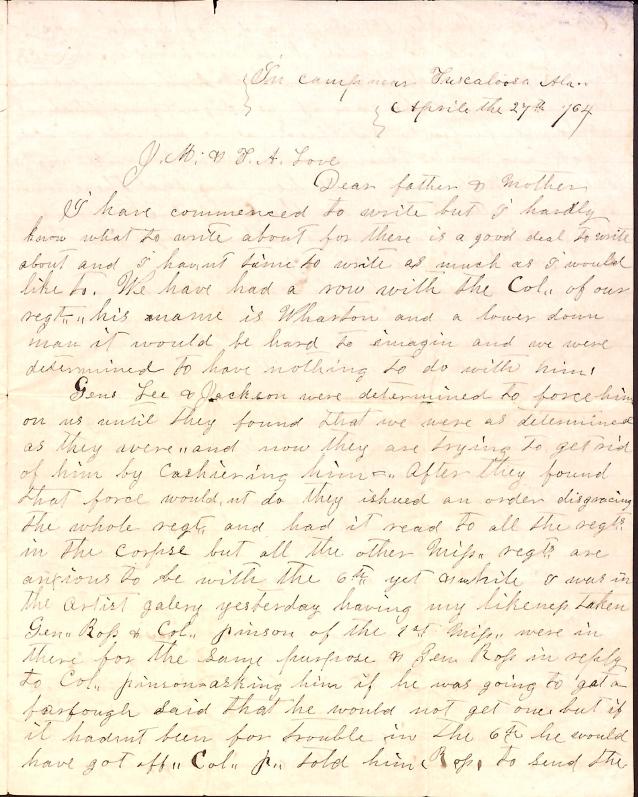 In camp near Tuscaloosa Ala..
Aprile the 27th /64
J. M. & T. A. Love
Dear father & Mother
I have commenced to write but I hardly
know what to write about for there is a good deal to write
about and I hav,nt time to write as much as I would
like to. We have had a row with the Col,, of our
regt,, his name is Wharton and a lower down
man it would be hard to imagin and we were
determined to have nothing to do with him,
Gens Lee & Jackson were determined to force him
on us until they found that we were as determined
as they were,, and now they are trying to get rid
of him by Cashiering him,, After they found
that force would,nt do they ishued an order disgracing
the whole regt,, and had it read to all the regts
in the corpse but all the other Miss,, regts are
anxious to be with the 6th yet & while I was in
the artist galery yesterday having my likeness taken
Gen,, Ross & Col,, pinson of the 1st Miss,, were in
there for the same purpose & Gen Ross in reply
to Col,, pinson asking him if he was going to get a
furlough said that he would not get one but if
it hadnt been for trouble in the 6th he would
have got off,, Col,, p,, told him Ross, to send the